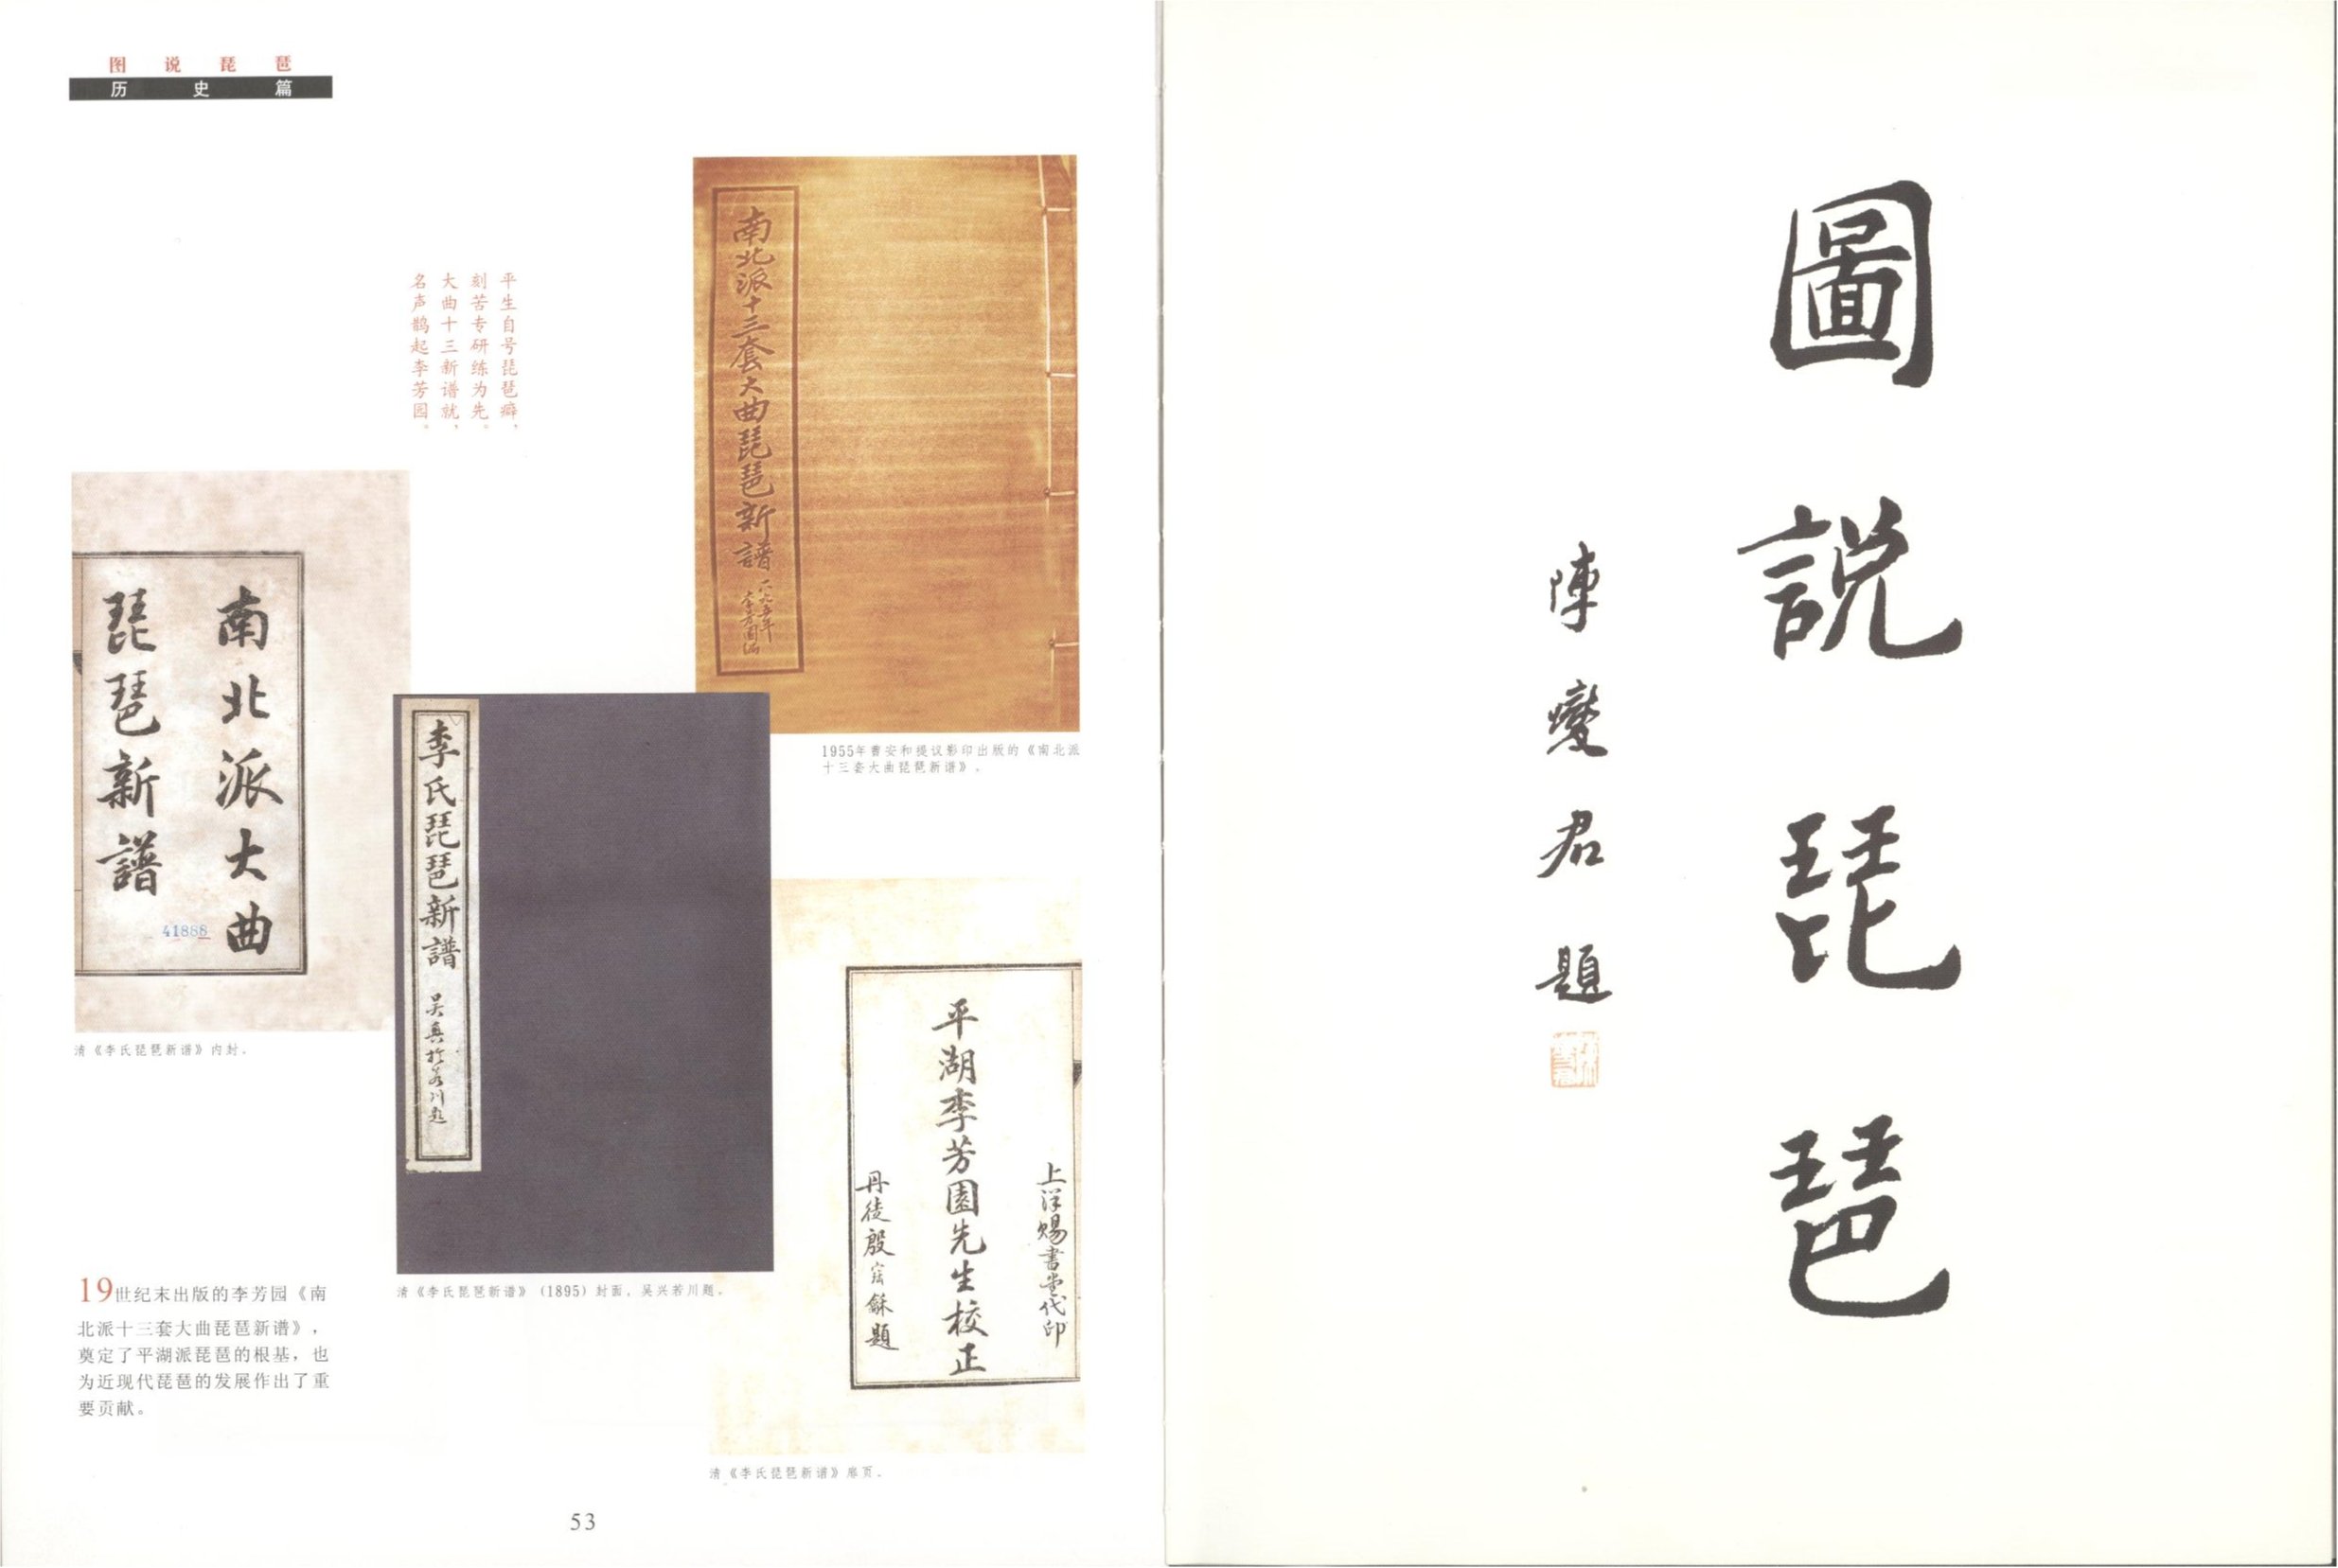 图说琵琶
历史篇
平生自号琵琶癖，
刻苦专研练为先。
大曲十三新谱就，
名声鹊起李芳园。
南北派十三套大曲琵琶新譜
一八九五年
李芳園編
1955年曹安和提议影印出版的《南北派
十三套大曲琵琶新谱》。
南北派大曲
琵琶新譜
41888
清《李氏琵琶新谱》内封。
李氏琵琶新譜
清《李氏琵琶新谱》（1895）封面。吴兴若川题。
上洋賜書堂代印
平湖李芳園先生校正
丹徒殷 龢題
清《李氏琵琶新谱》扉页。
19世纪末出版的李芳园《南
北派十三套大曲琵琶新谱》，
奠定了平湖派琵琶的根基，也
为近现代琵琶的发展作出了重
要贡献。
53
圖説琵琶
陳燮君題